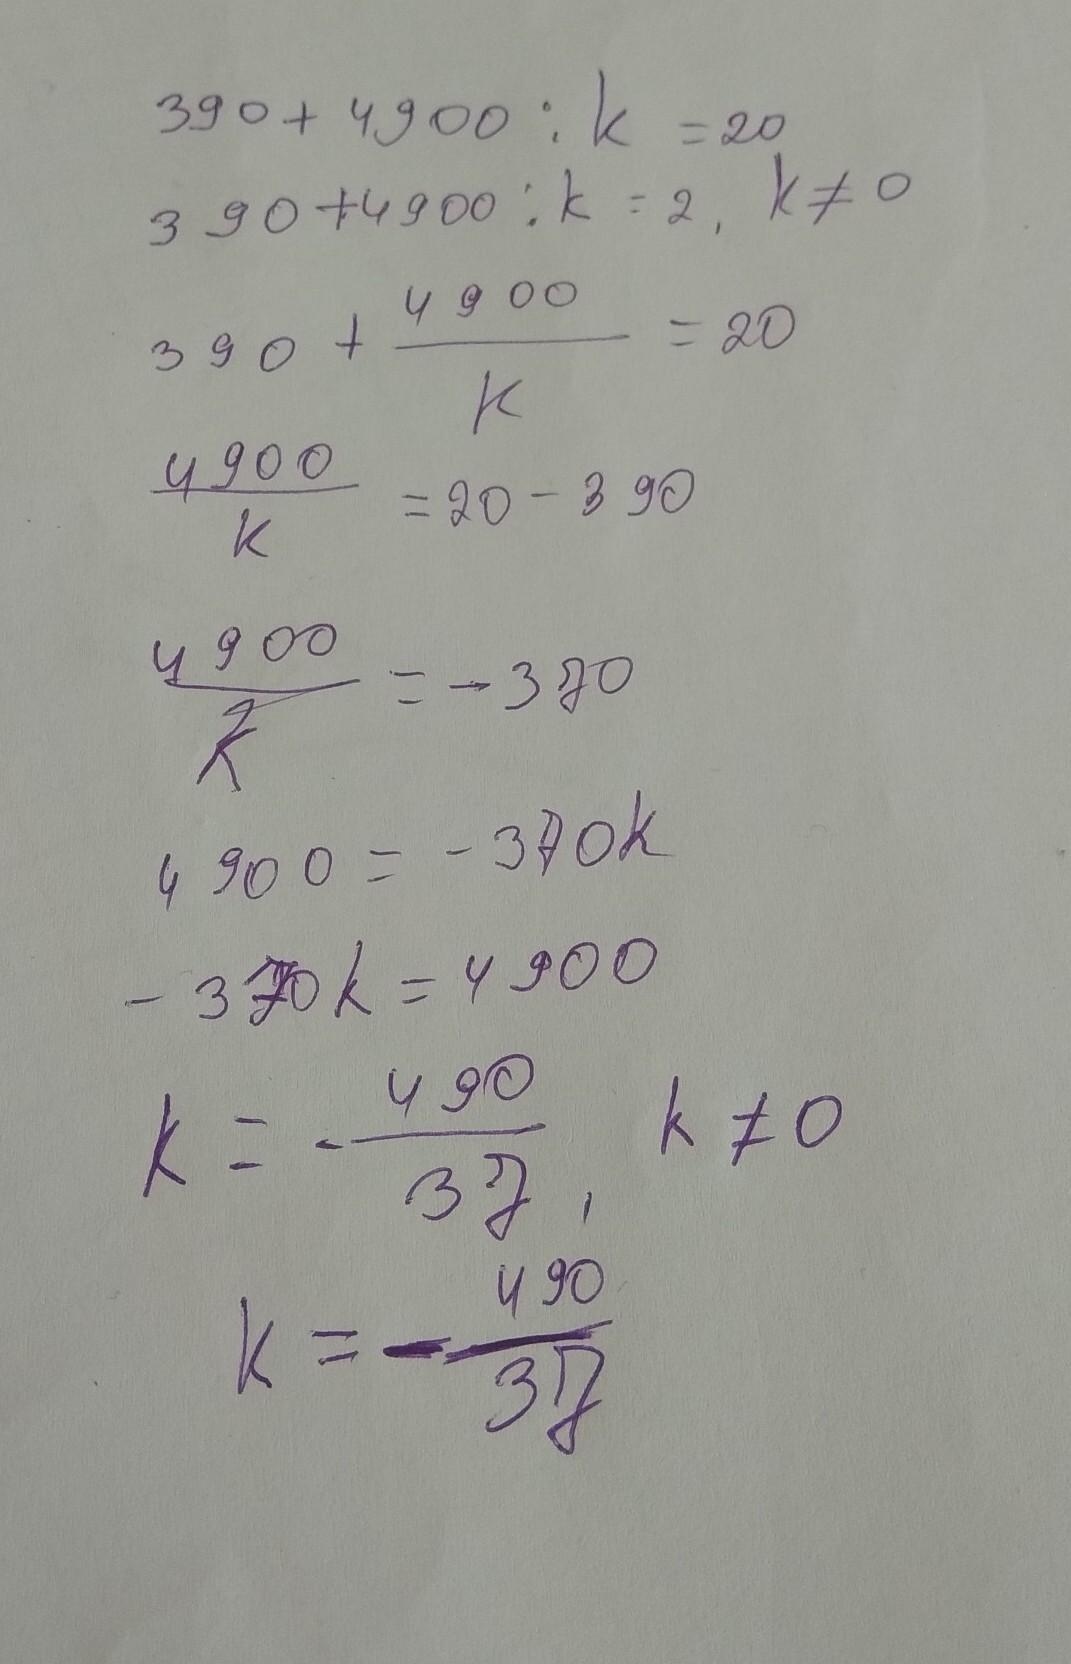 390 + 4900 : k = 20
390 + 4900 : k = 2, k ≠ 0
390 + 4900/k = 20
4900/k = 20 - 390
4900/k = -370
4900 = -370k
-370k = 4900
k = -490/37, k ≠ 0
k = -490/37